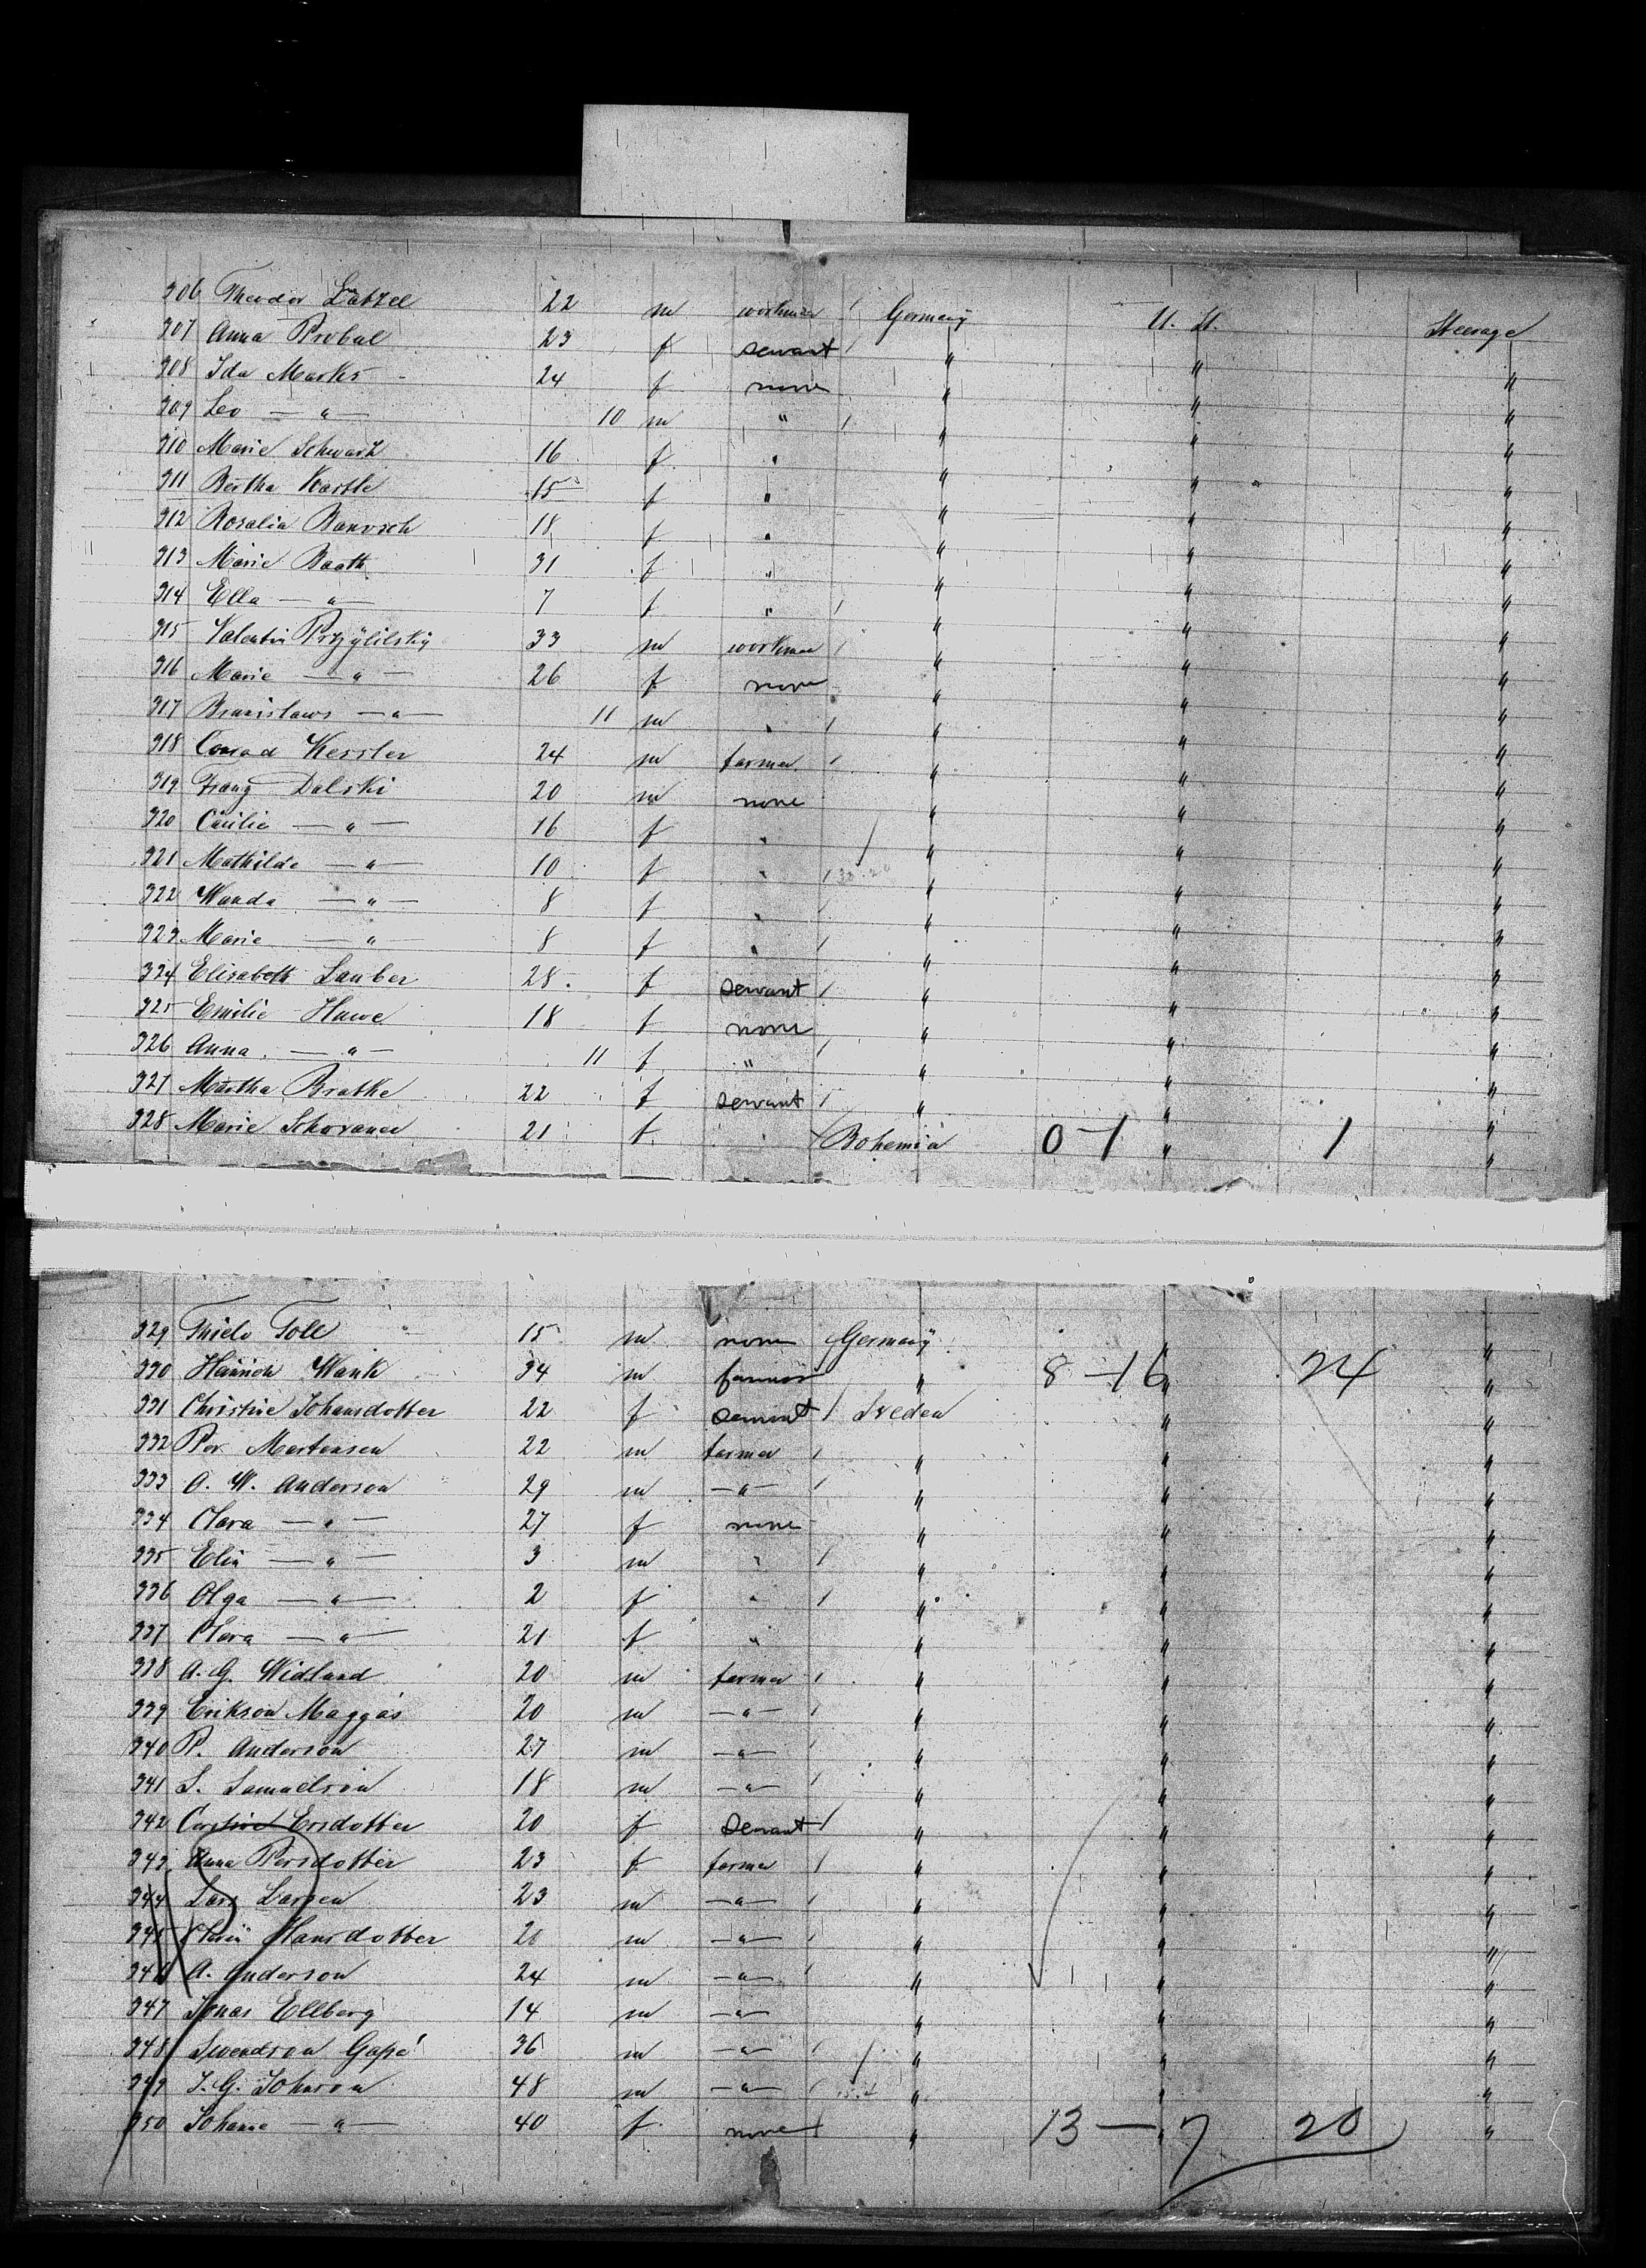 306 Theodor Latzel 22 m workman / Germany U. St. Steerage
307 Anna Probul 23 f servant / " " "
308 Ida Marks 24 f none " " "
309 Leo — " — 10 m " / " " "
310 Marie Schwarz 16 f " " " "
311 Bertha Kastle 15 f " " " "
312 Rosalia Banosch 18 f " " " "
313 Marie Baath 31 f " " " "
314 Ella — " — 7 f " / " " "
315 Valentin Przÿlilskÿ 33 m workman / " " "
316 Marie — " — 26 f none " " "
317 Branislaws — " — 11 m " / " " "
318 Conrad Kessler 24 m farmer / " " "
319 Franz Dalski 20 m none " " "
320 Cäcilie — " — 16 f " " " "
321 Mathilde — " — 10 f " / " " "
322 Wanda — " — 8 f " / " " "
323 Marie — " — 8 f " / " " "
324 Elisabeth Lauber 28 f servant / " " "
325 Emilie Hawe 18 f none " " "
326 Anna — " — 11 f " / " " "
327 Martha Brathe 22 f servant / " " "
328 Marie 21 f " / Bohemia 0-1 " 1 "
329 Thielo Toll 15 m none / Germanÿ " "
330 Heinrich Wank 34 m farmer / " 8-16 " 24 "
331 Christine Johansdotter 22 f servant / Sweden " "
332 Per Martensen 22 m farmer / " " "
333 A. W. Anderson 29 m — " — / " " "
334 Clara — " — 27 f none " " "
335 Elin — " — 3 m " / " " "
336 Olga — " — 2 f " / " " "
337 Clara — " — 21 f " " " "
338 A. G. Widlund 20 m farmer / " " "
339 Erikson Maggas 20 m — " — / " " "
340 P. Anderson 27 m — " — / " " "
341 S. Samuelson 18 m — " — / " " "
342 Ersdotter 20 f servant / " " "
343 Anna Persdotter 23 f farmer / " " "
344 Lars Larsen 23 m — " — / " " "
345 Hansdotter 20 m — " — / " " "
346 A. Anderson 24 m — " — / " " "
347 Jonas Ellberg 14 m — " — " " "
348 Swendson 36 m — " — / " " "
349 J. G. Johnson 48 m — " — / " " "
350 Johanna — " — 40 f none / " 13 — 7 " 20 "